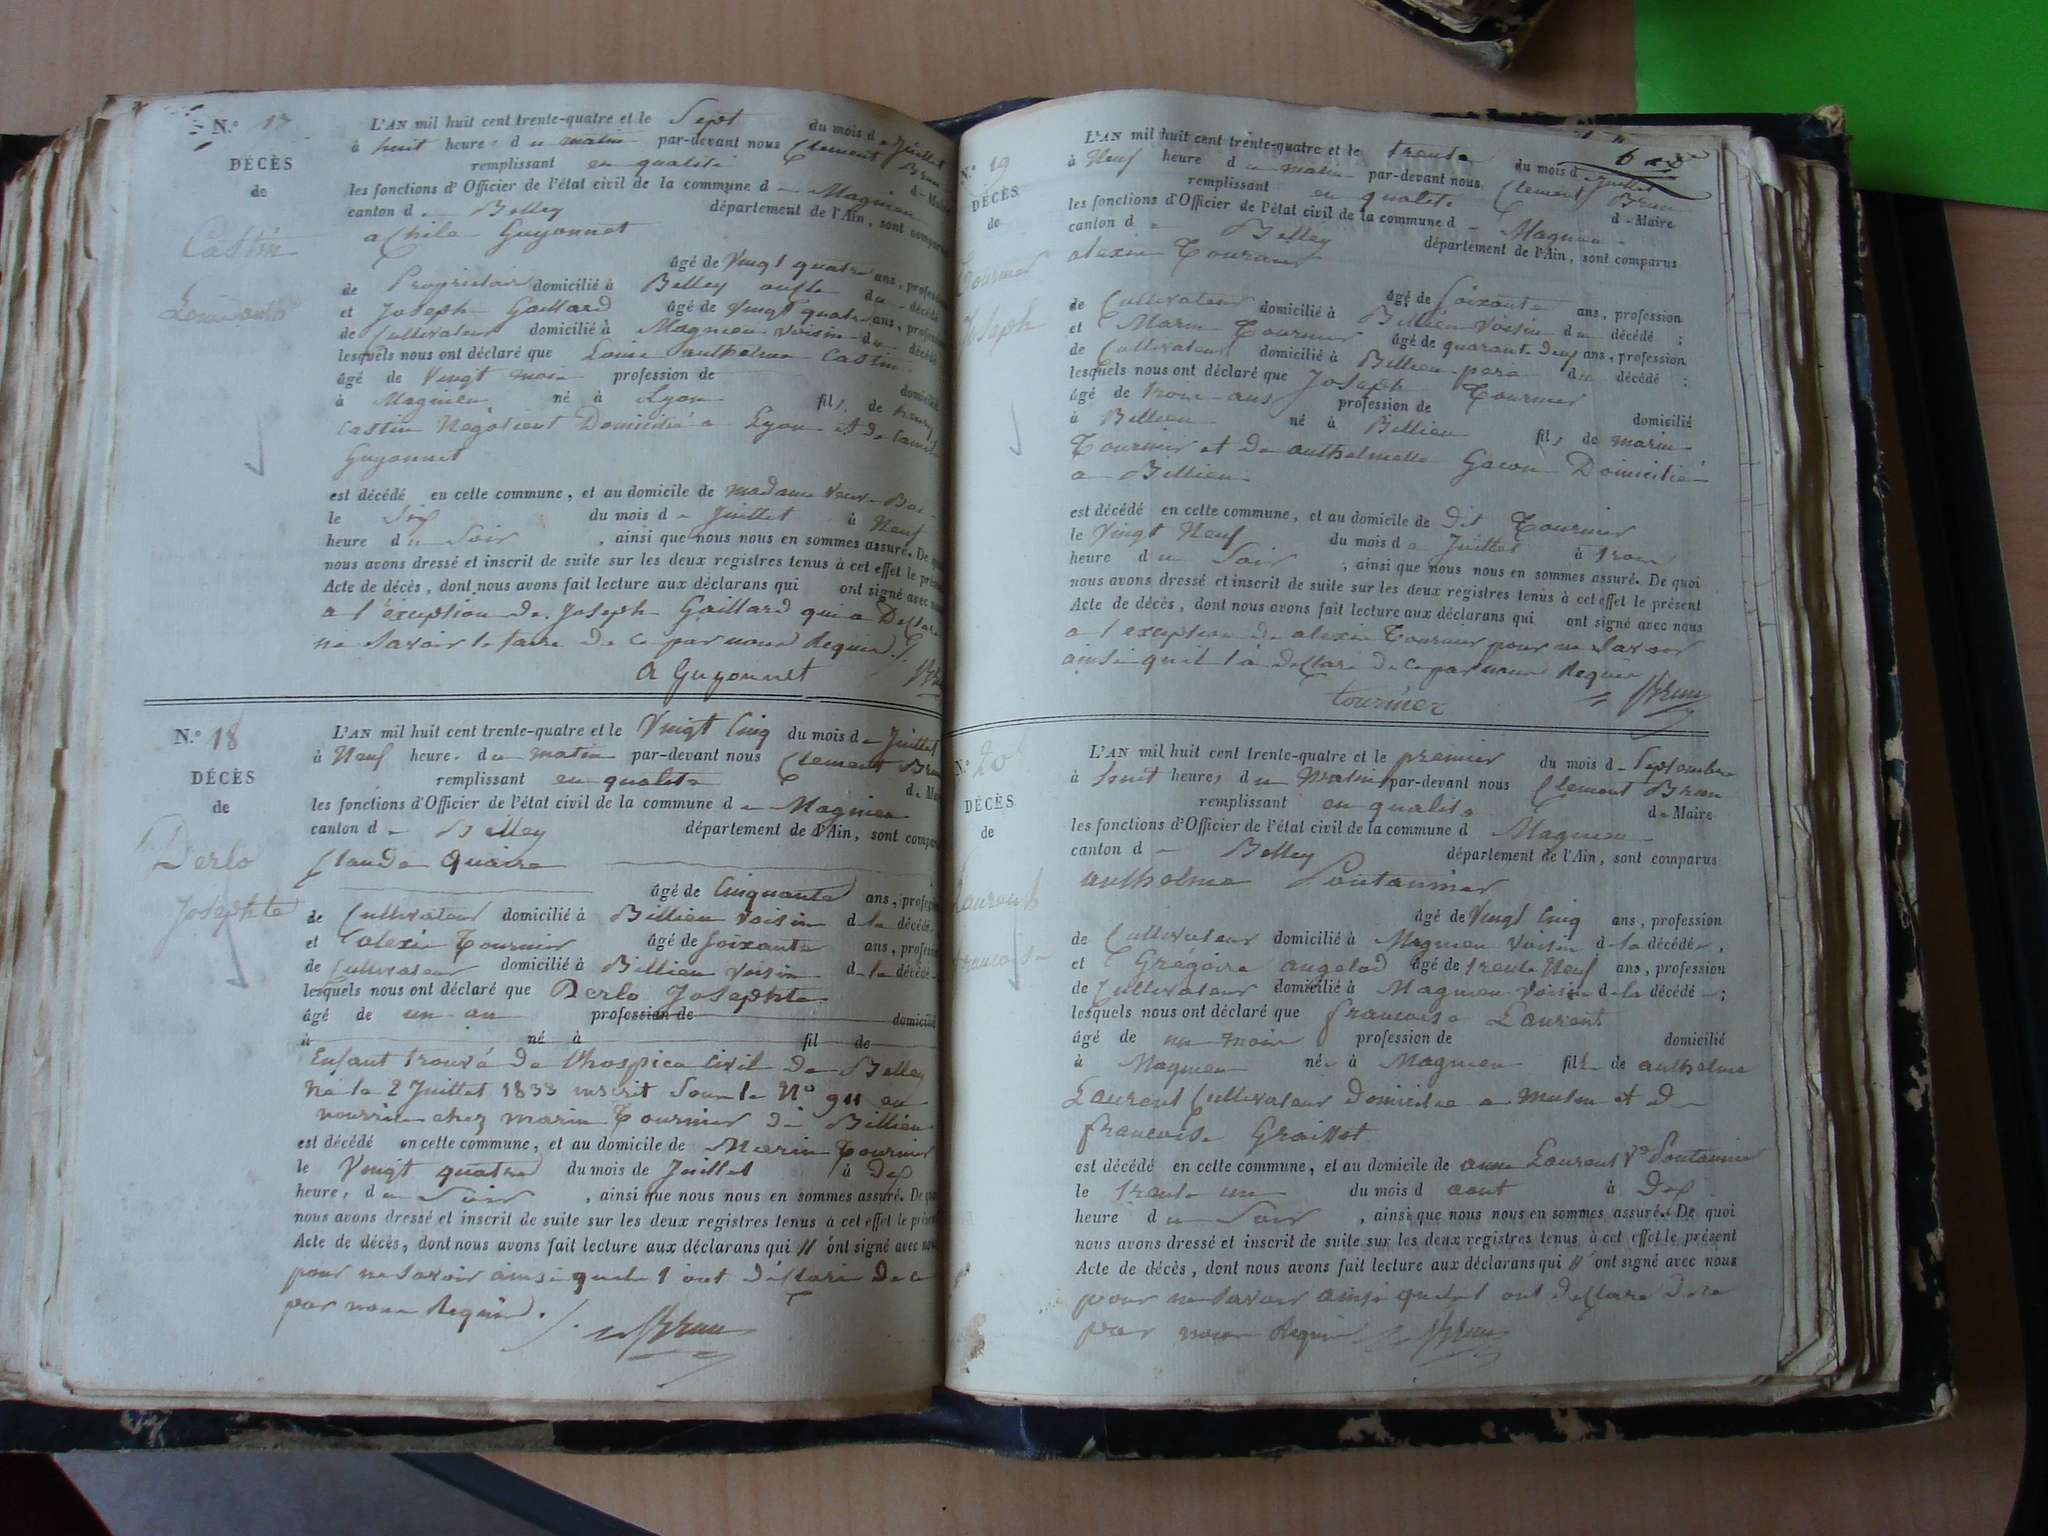 N.º 17
DÉCÈS
de
Castin
L'AN mil huit cent trente-quatre et le Sept du mois d Juillet
à huit heure, du matin par-devant nous Clement Brun
remplissant en qualité d Maire
les fonctions d'Officier de l'état civil de la commune d Magnieu
canton d Belley département de l'Ain, sont comparus
achile Guyonnet
âgé de Vingt quatre ans, profession
de Propriétair domicilié à Belley oncle du décédé
et Joseph Gaillard âgé de Vingt quatre ans, profession
de Cultivateur domicilié à Magnieu Voisin du décédé
lesquels nous ont déclaré que Louis anthelme Castin
âgé de Vingt mois profession de domicilié
à Magnieu né à Lyon fils de henry
Castin Négotient Domicilié a Lyon et de
Guyonnet
est décédé en cette commune, et au domicile de madame
le Six du mois d Juillet à Neuf
heure du Soir, ainsi que nous nous en sommes assuré. De quoi
nous avons dressé et inscrit de suite sur les deux registres tenus à cet effet le présent
Acte de décès, dont nous avons fait lecture aux déclarans qui ont signé avec nous
a l'éxception de Joseph Gaillard qui a Déclaré
ne Savoir le faire De ce par nous Requis.
A Guyonnet
N.º 18
DÉCÈS
de
Derlo
Josephte
L'AN mil huit cent trente-quatre et le Vingt Cinq du mois de Juillet
à Neuf heure, du matin par-devant nous Clement Brun
remplissant en qualité de Maire
les fonctions d'Officier de l'état civil de la commune d Magnieu
canton d Belley département de l'Ain, sont comparus
Claude
âgé de Cinquante ans, profession
de Cultivateur domicilié à Billieu Voisin d la décédé
et alexi Tournier âgé de Soixante ans, profession
de Cultivateur domicilié à Billieu Voisin d la décédé
lesquels nous ont déclaré que Derlo Josephte
âgé de un an profession de domicilié
à né à fil de
Enfant trouvé de l'hospice Civil de Belley
Né le 2 Juillet 1833 inscrit Sous le Nº 911 en
nourrice chez marin Tournier de Billieu
est décédé en cette commune, et au domicile de Marin Tournier
le Vingt quatre du mois de Juillet à Dix
heure, du Soir, ainsi que nous nous en sommes assuré. De quoi
nous avons dressé et inscrit de suite sur les deux registres tenus à cet effet le présent
Acte de décès, dont nous avons fait lecture aux déclarans qui n'ont signé avec nous
pour ne Savoir ainsi quils l ont déclaré De ce
par nous Requis.
Brun
N.º 19
DÉCÈS
de
Tournier
Joseph
L'AN mil huit cent trente-quatre et le trente du mois d Juillet
à Neuf heure du matin par-devant nous Clement Brun
remplissant en qualité d Maire
les fonctions d'Officier de l'état civil de la commune d Magnieu
canton d Belley département de l'Ain, sont comparus
alexis Tournier
âgé de Soixante ans, profession
de Cultivateur domicilié à Billieu Voisin du décédé ;
et Marin Tournier âgé de quarante Deux ans, profession
de Cultivateur domicilié à Billieu pere du décédé ;
lesquels nous ont déclaré que Joseph Tournier
âgé de trois ans profession de domicilié
à Billieu né à Billieu fils de marin
Tournier et de anthelmette Gacon Domicilié
a Billieu
est décédé en cette commune, et au domicile de Dit Tournier
le Vingt Neuf du mois de Juillet à trois
heure du Soir, ainsi que nous nous en sommes assuré. De quoi
nous avons dressé et inscrit de suite sur les deux registres tenus à cet effet le présent
Acte de décès, dont nous avons fait lecture aux déclarans qui ont signé avec nous
a l'exception de alexis Tournier pour ne Savoir
ainsi quil l'a déclaré de ce par nous Requis
tournier Brun
N.º 20
DÉCÈS
de
Laurent
francoise
L'AN mil huit cent trente-quatre et le premier du mois d Septembre
à huit heures du Matin par-devant nous Clement Brun
remplissant en qualité de Maire
les fonctions d'Officier de l'état civil de la commune d Magnieu
canton d Belley département de l'Ain, sont comparus
anthelme Pontannier
âgé de Vingt Cinq ans, profession
de Cultivateur domicilié à Magnieu Voisin d la décédé,
et Gregoire angelod âgé de trente Neuf ans, profession
de Cultivateur domicilié à Magnieu Voisin d la décédé ;
lesquels nous ont déclaré que francoise Laurent
âgé de un mois profession de domicilié
à Magnieu née à Magnieu fille de anthelme
Laurent Cultivateur domicilié a et de
francoise
est décédé en cette commune, et au domicile de anne Laurent Vve Pontannier
le trente un du mois d aout à Dix
heure du Soir, ainsi que nous nous en sommes assuré. De quoi
nous avons dressé et inscrit de suite sur les deux registres tenus à cet effet le présent
Acte de décès, dont nous avons fait lecture aux déclarans qui n'ont signé avec nous
pour ne Savoir ainsi quils l ont déclaré De ce
par nous Requis Brun